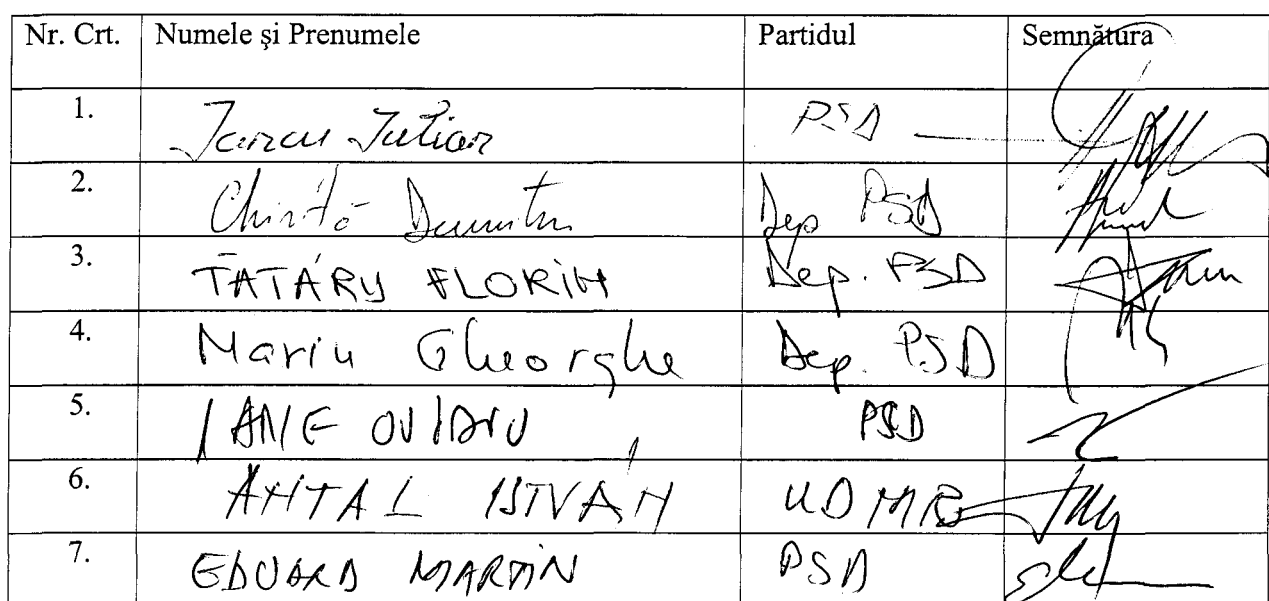 Nr. Crt. Numele şi Prenumele Partidul Semnătura
1. Iancu Iulian PSD
2. Chiriță Dumitru Dep PSD
3. TĂTARU FLORIN Dep. PSD
4. Marin Gheorghe Dep. PSD
5. IANE OVIDIU PSD
6. ANTAL ISTVÁN UDMR
7. EDUARD MARTIN PSD